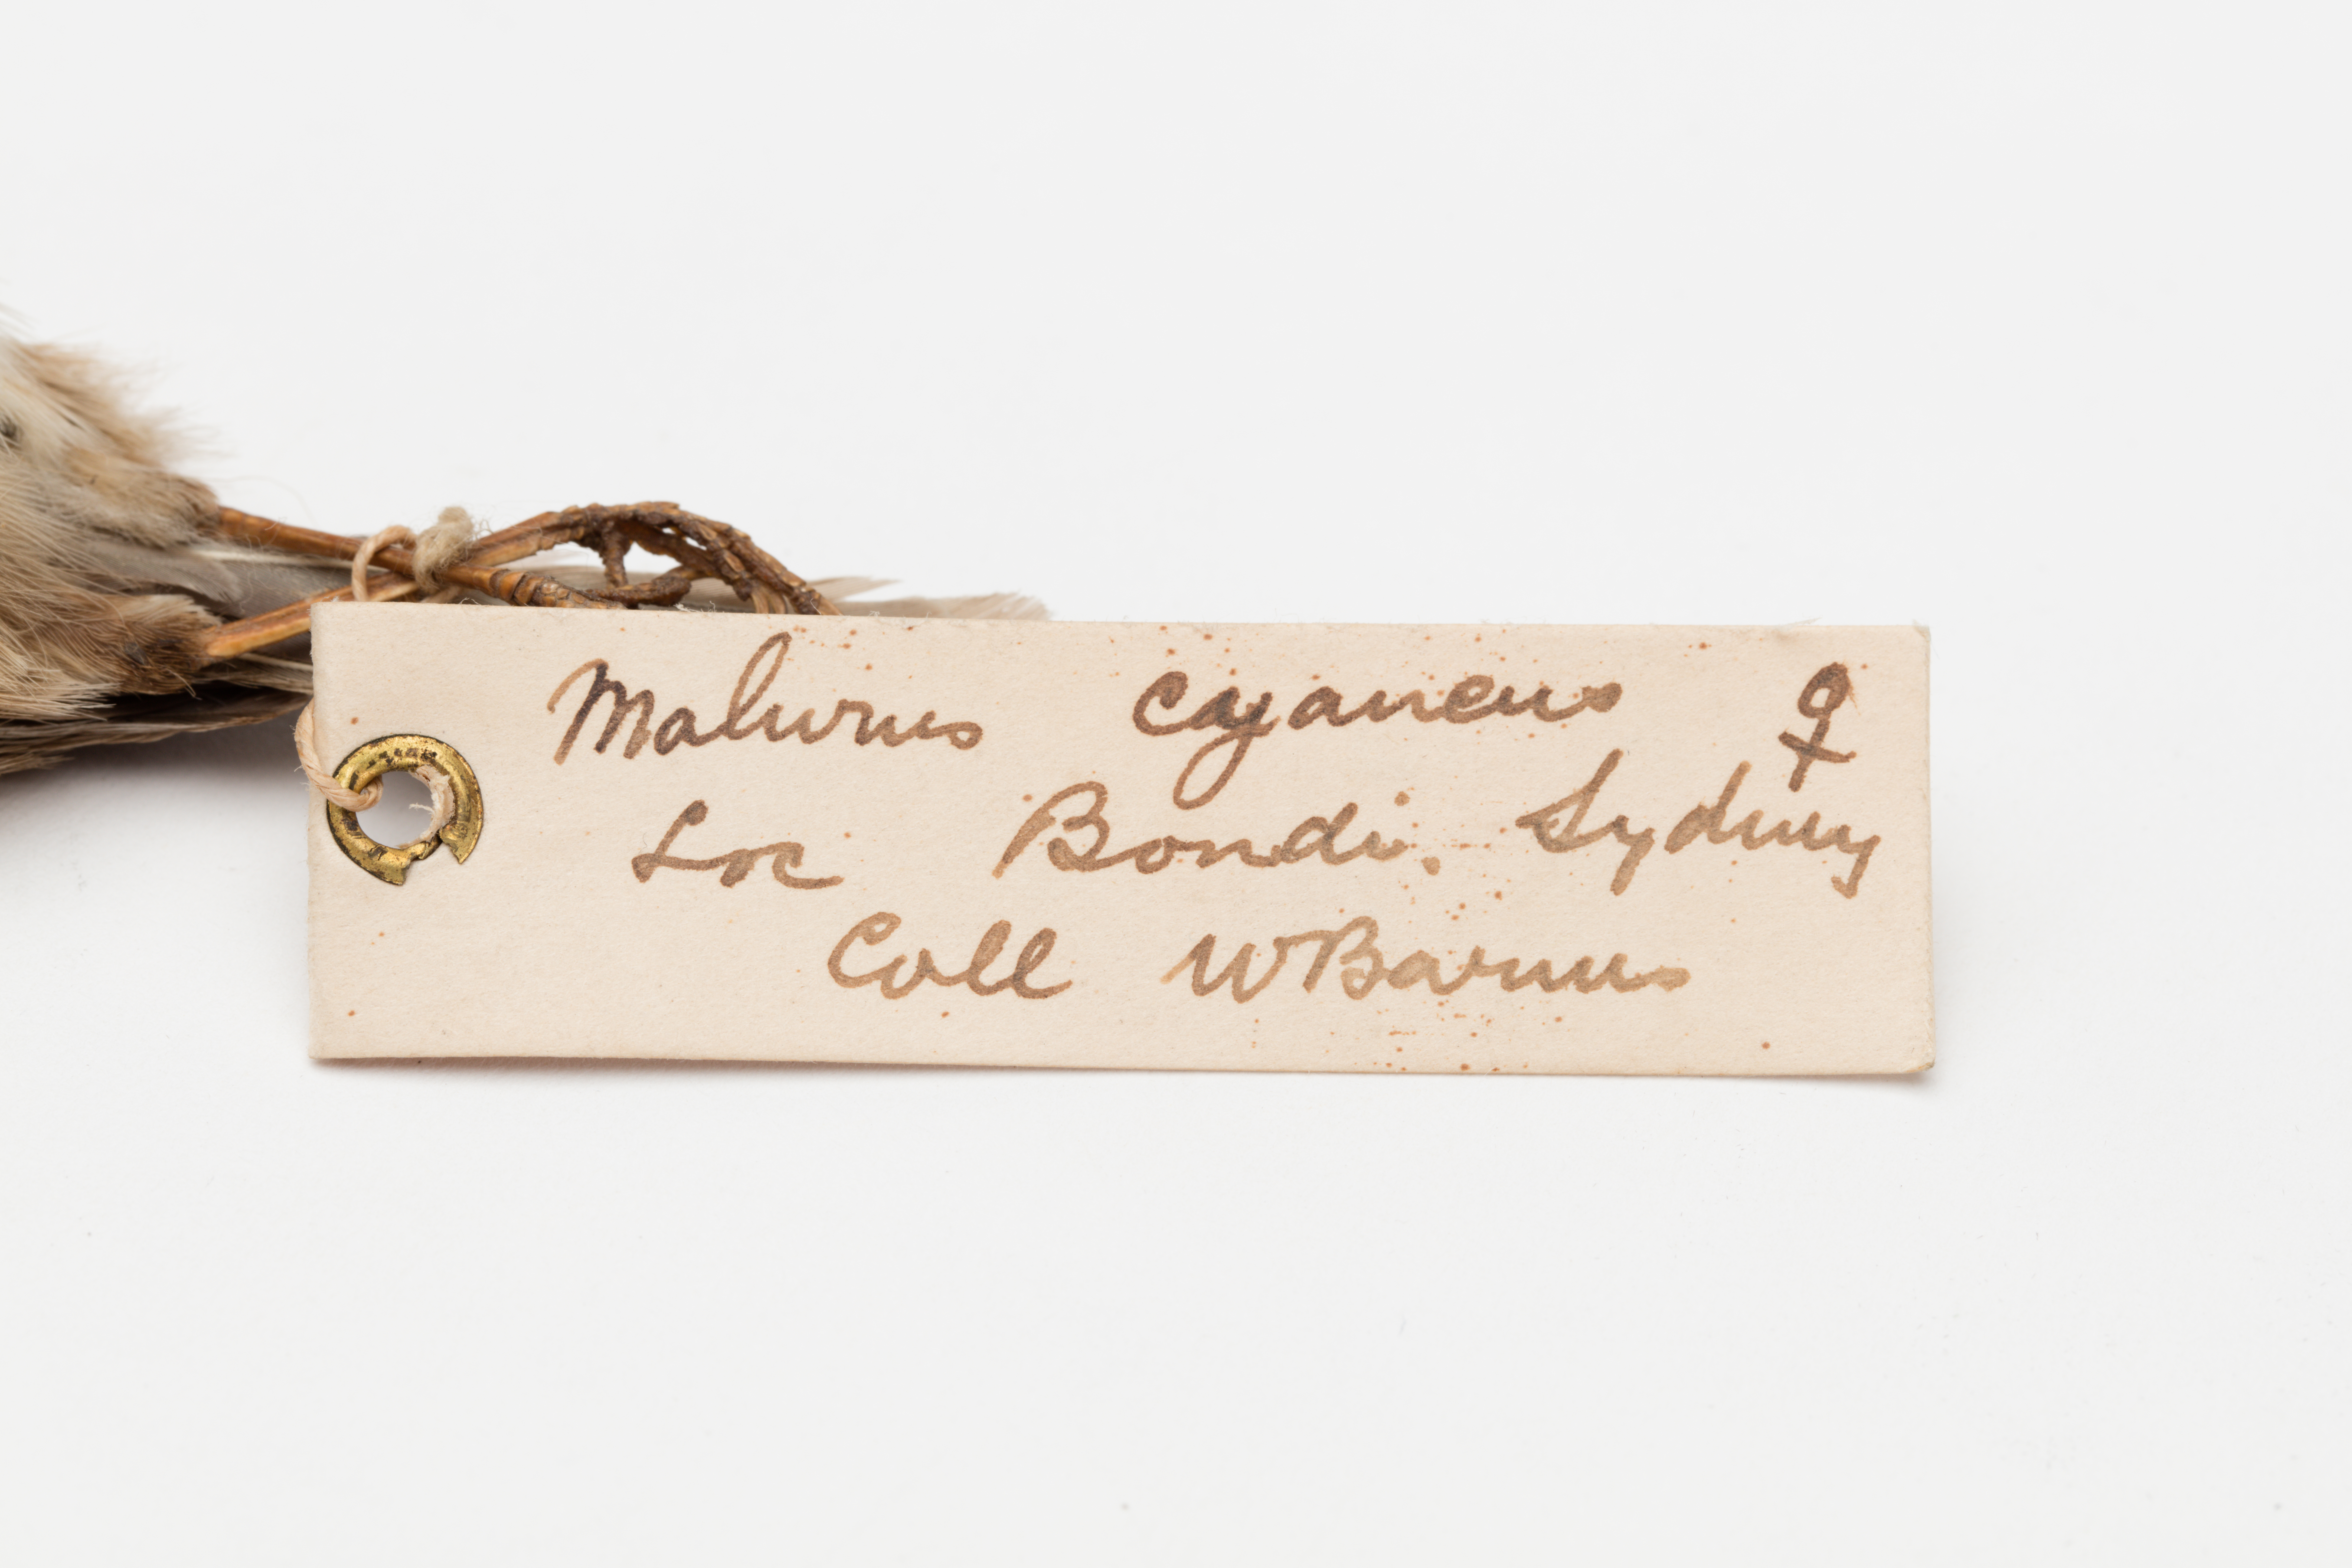 Malurus cyaneus ♀
Loc Bondi, Sydney
Coll W Barnes